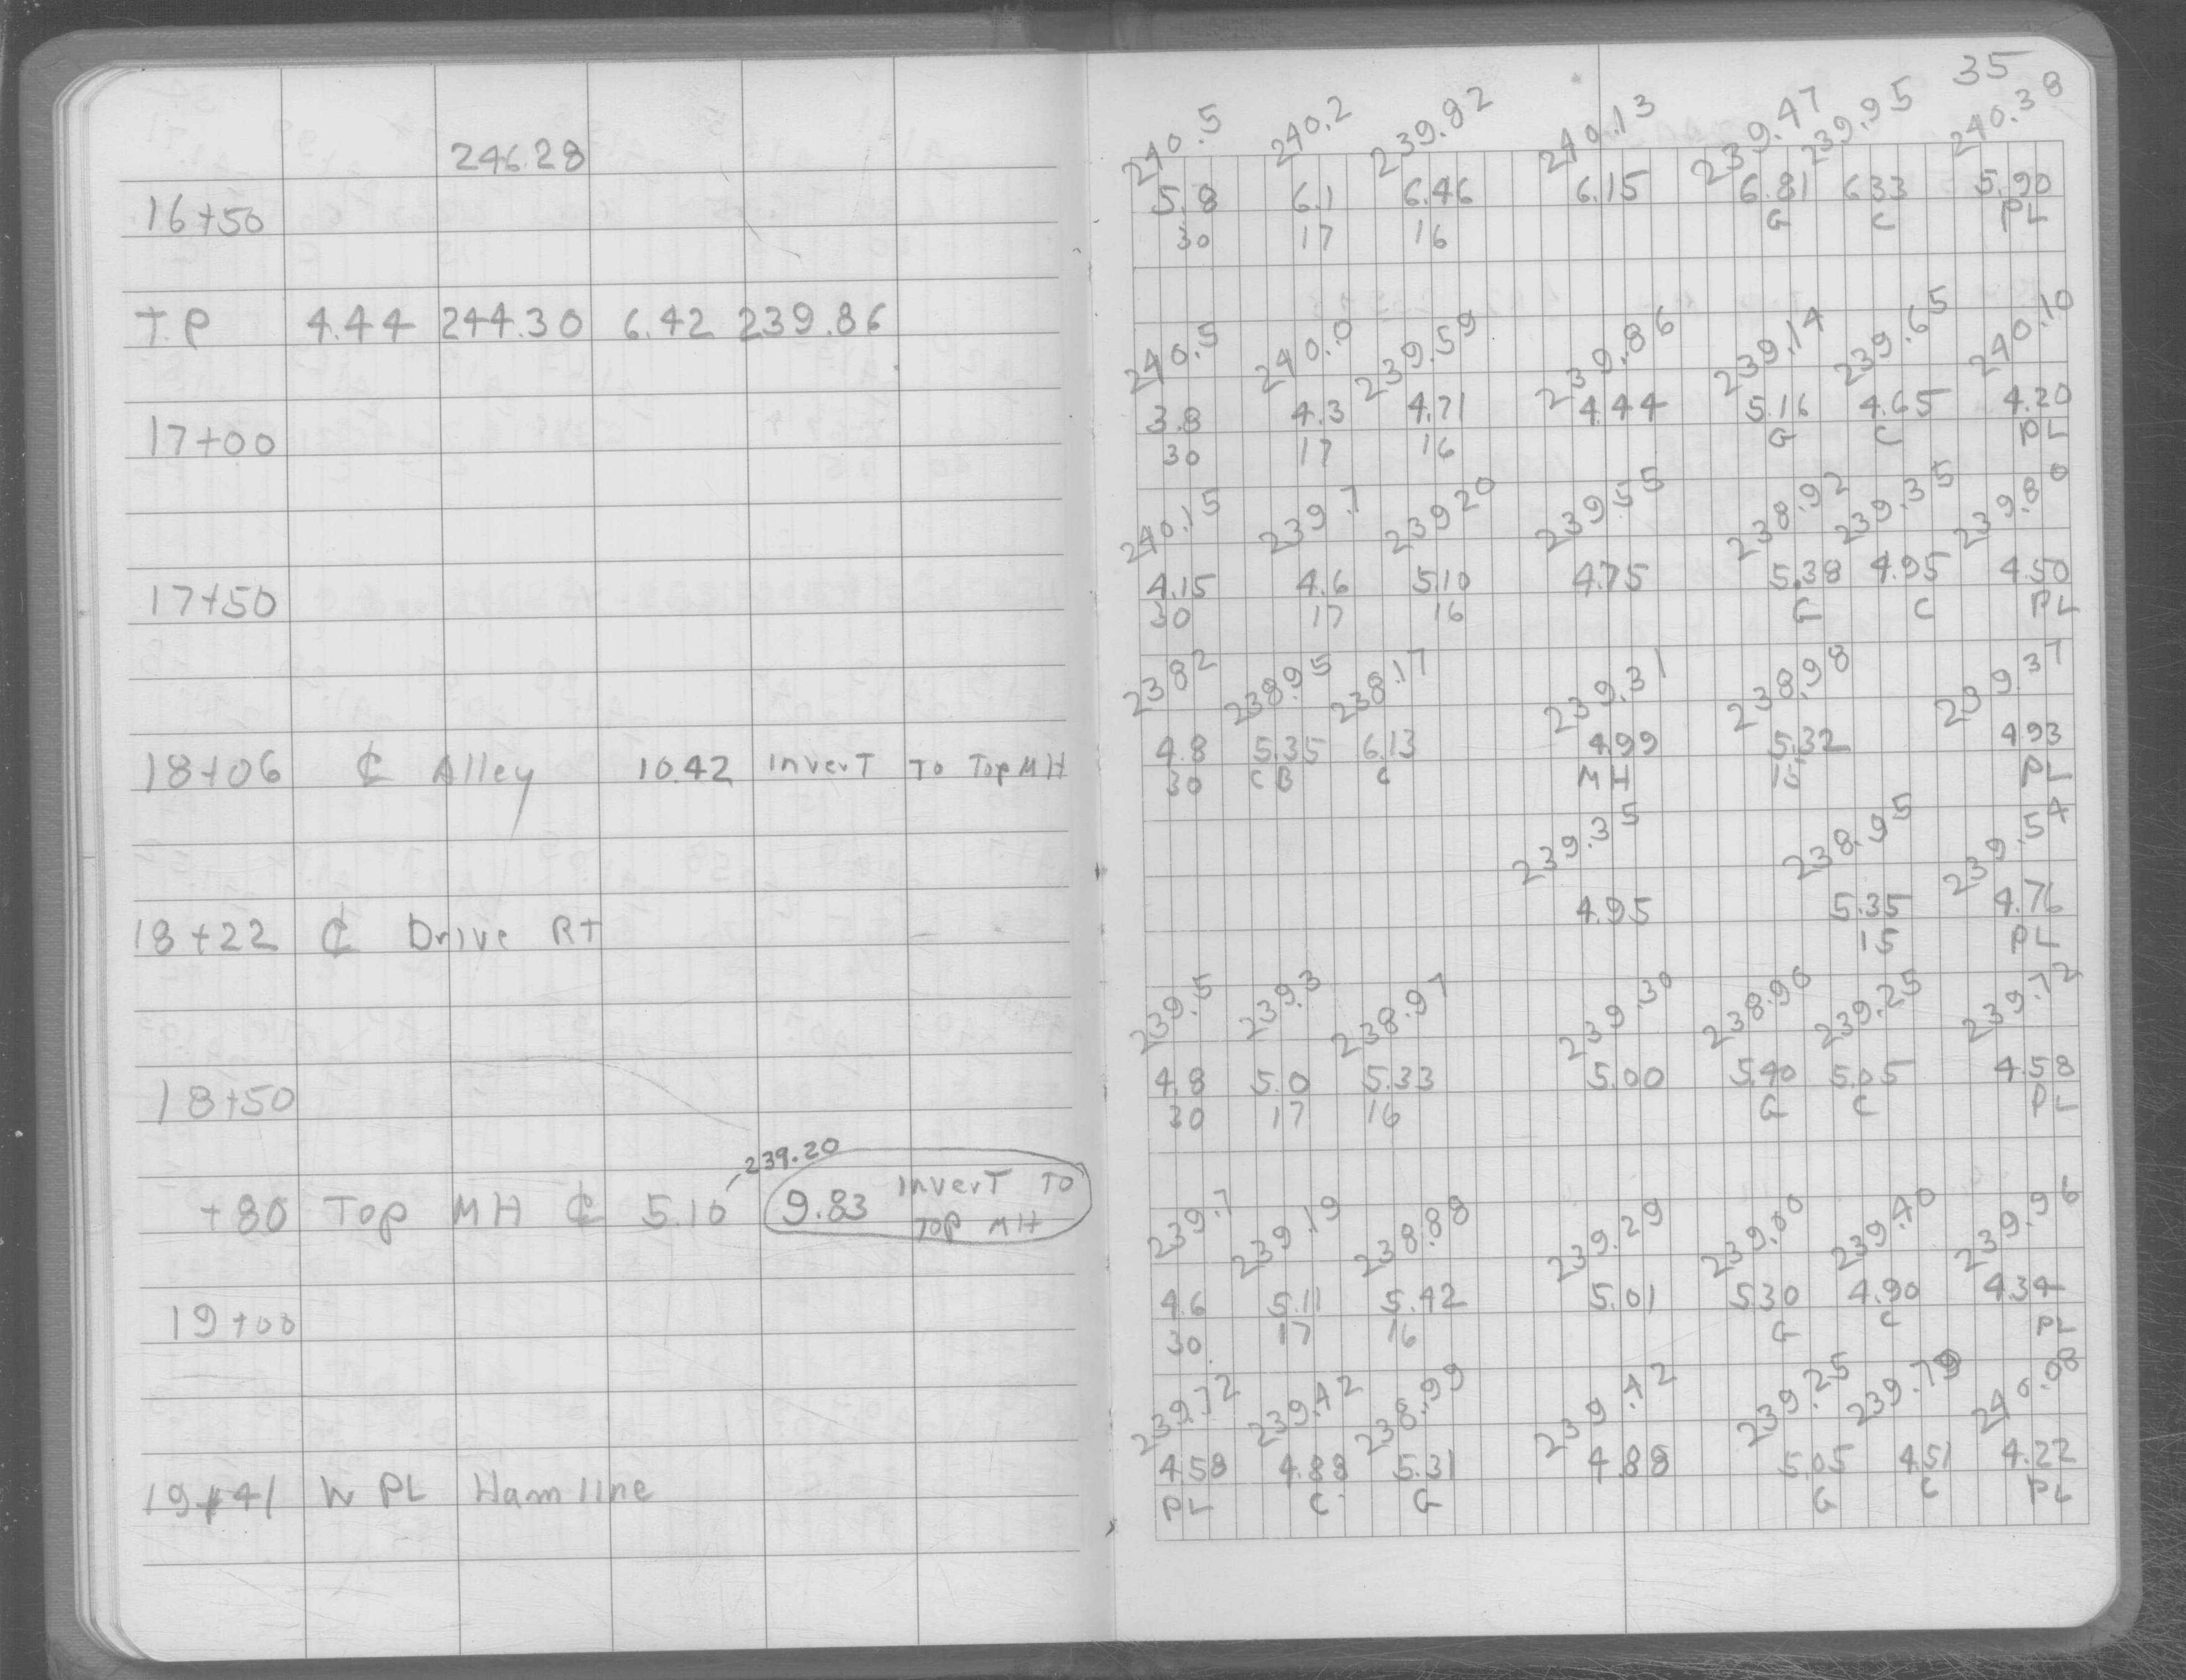 246.28
16+50
T.P 4.44 244.30 6.42 239.86
17+00
17+50
18+06 ₵ Alley 10.42 InverT To Top MH
18+22 ₵ Drive RT
18+50
239.20
+80 Top MH ₵ 5.10 9.83 InverT To
Top MH
19+00
19+41 W PL Hamline
35
240.5 240.2 239.82 240.13 239.47 239.95 240.38
5.8 6.1 6.46 6.15 6.81 6.33 5.90
30 17 16 G C PL
240.5 240.0 239.59 239.86 239.14 239.65 240.10
3.8 4.3 4.71 4.44 5.16 4.65 4.20
30 17 16 G C PL
240.15 239.7 239.20 239.55 238.92 239.35 239.80
4.15 4.6 5.10 4.75 5.38 4.95 4.50
30 17 16 G C PL
238.2 238.95 238.17 239.31 238.98 239.37
4.8 5.35 6.13 4.99 5.32 4.93
30 CB C MH 15 PL
239.35 238.95 239.54
4.95 5.35 4.76
15 PL
239.5 239.3 238.97 239.30 238.90 239.25 239.72
4.8 5.0 5.33 5.00 5.40 5.05 4.58
30 17 16 G C PL
239.7 239.19 238.88 239.29 239.00 239.40 239.96
4.6 5.11 5.42 5.01 5.30 4.90 4.34
30 17 16 G C PL
239.72 239.42 238.99 239.42 239.25 239.79 240.08
4.58 4.88 5.31 4.88 5.05 4.51 4.22
PL C G G C PL